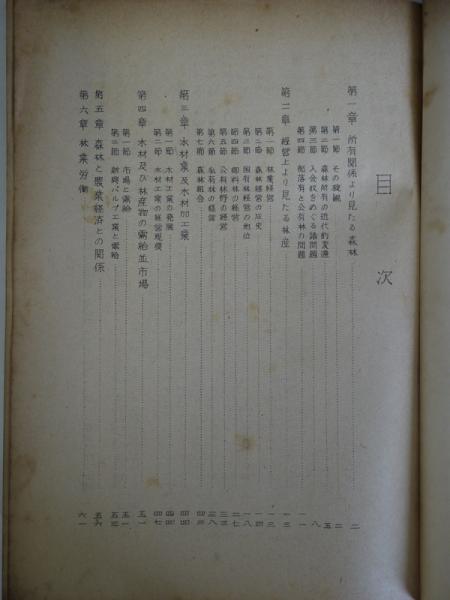 目次
第一章 所有関係より見たる森林 二
第一節 その概観 二
第二節 森林所有の近代的変遷 五
第三節 入会権をめぐる諸問題 八
第四節 部落有と公有林の問題 一一
第二章 経営上より見たる林産 一三
第一節 林業経営 一三
第二節 森林経営の歴史 一四
第三節 国有林経営の地位 一八
第四節 御料林の経営 二七
第五節 公有林野の経営
第六節 私有林の経営
第七節 森林組合
第三章 木材業及木材加工業 四四
第一節 木材工業の発展 四四
第二節 木材工業の経営規模 四七
第四章 木材及び林産物の需給並市場 五一
第一節 市場と需給 五一
第二節 製紙パルプ工業と需給
第五章 森林と農業経済との関係 五六
第六章 林業労働 六一